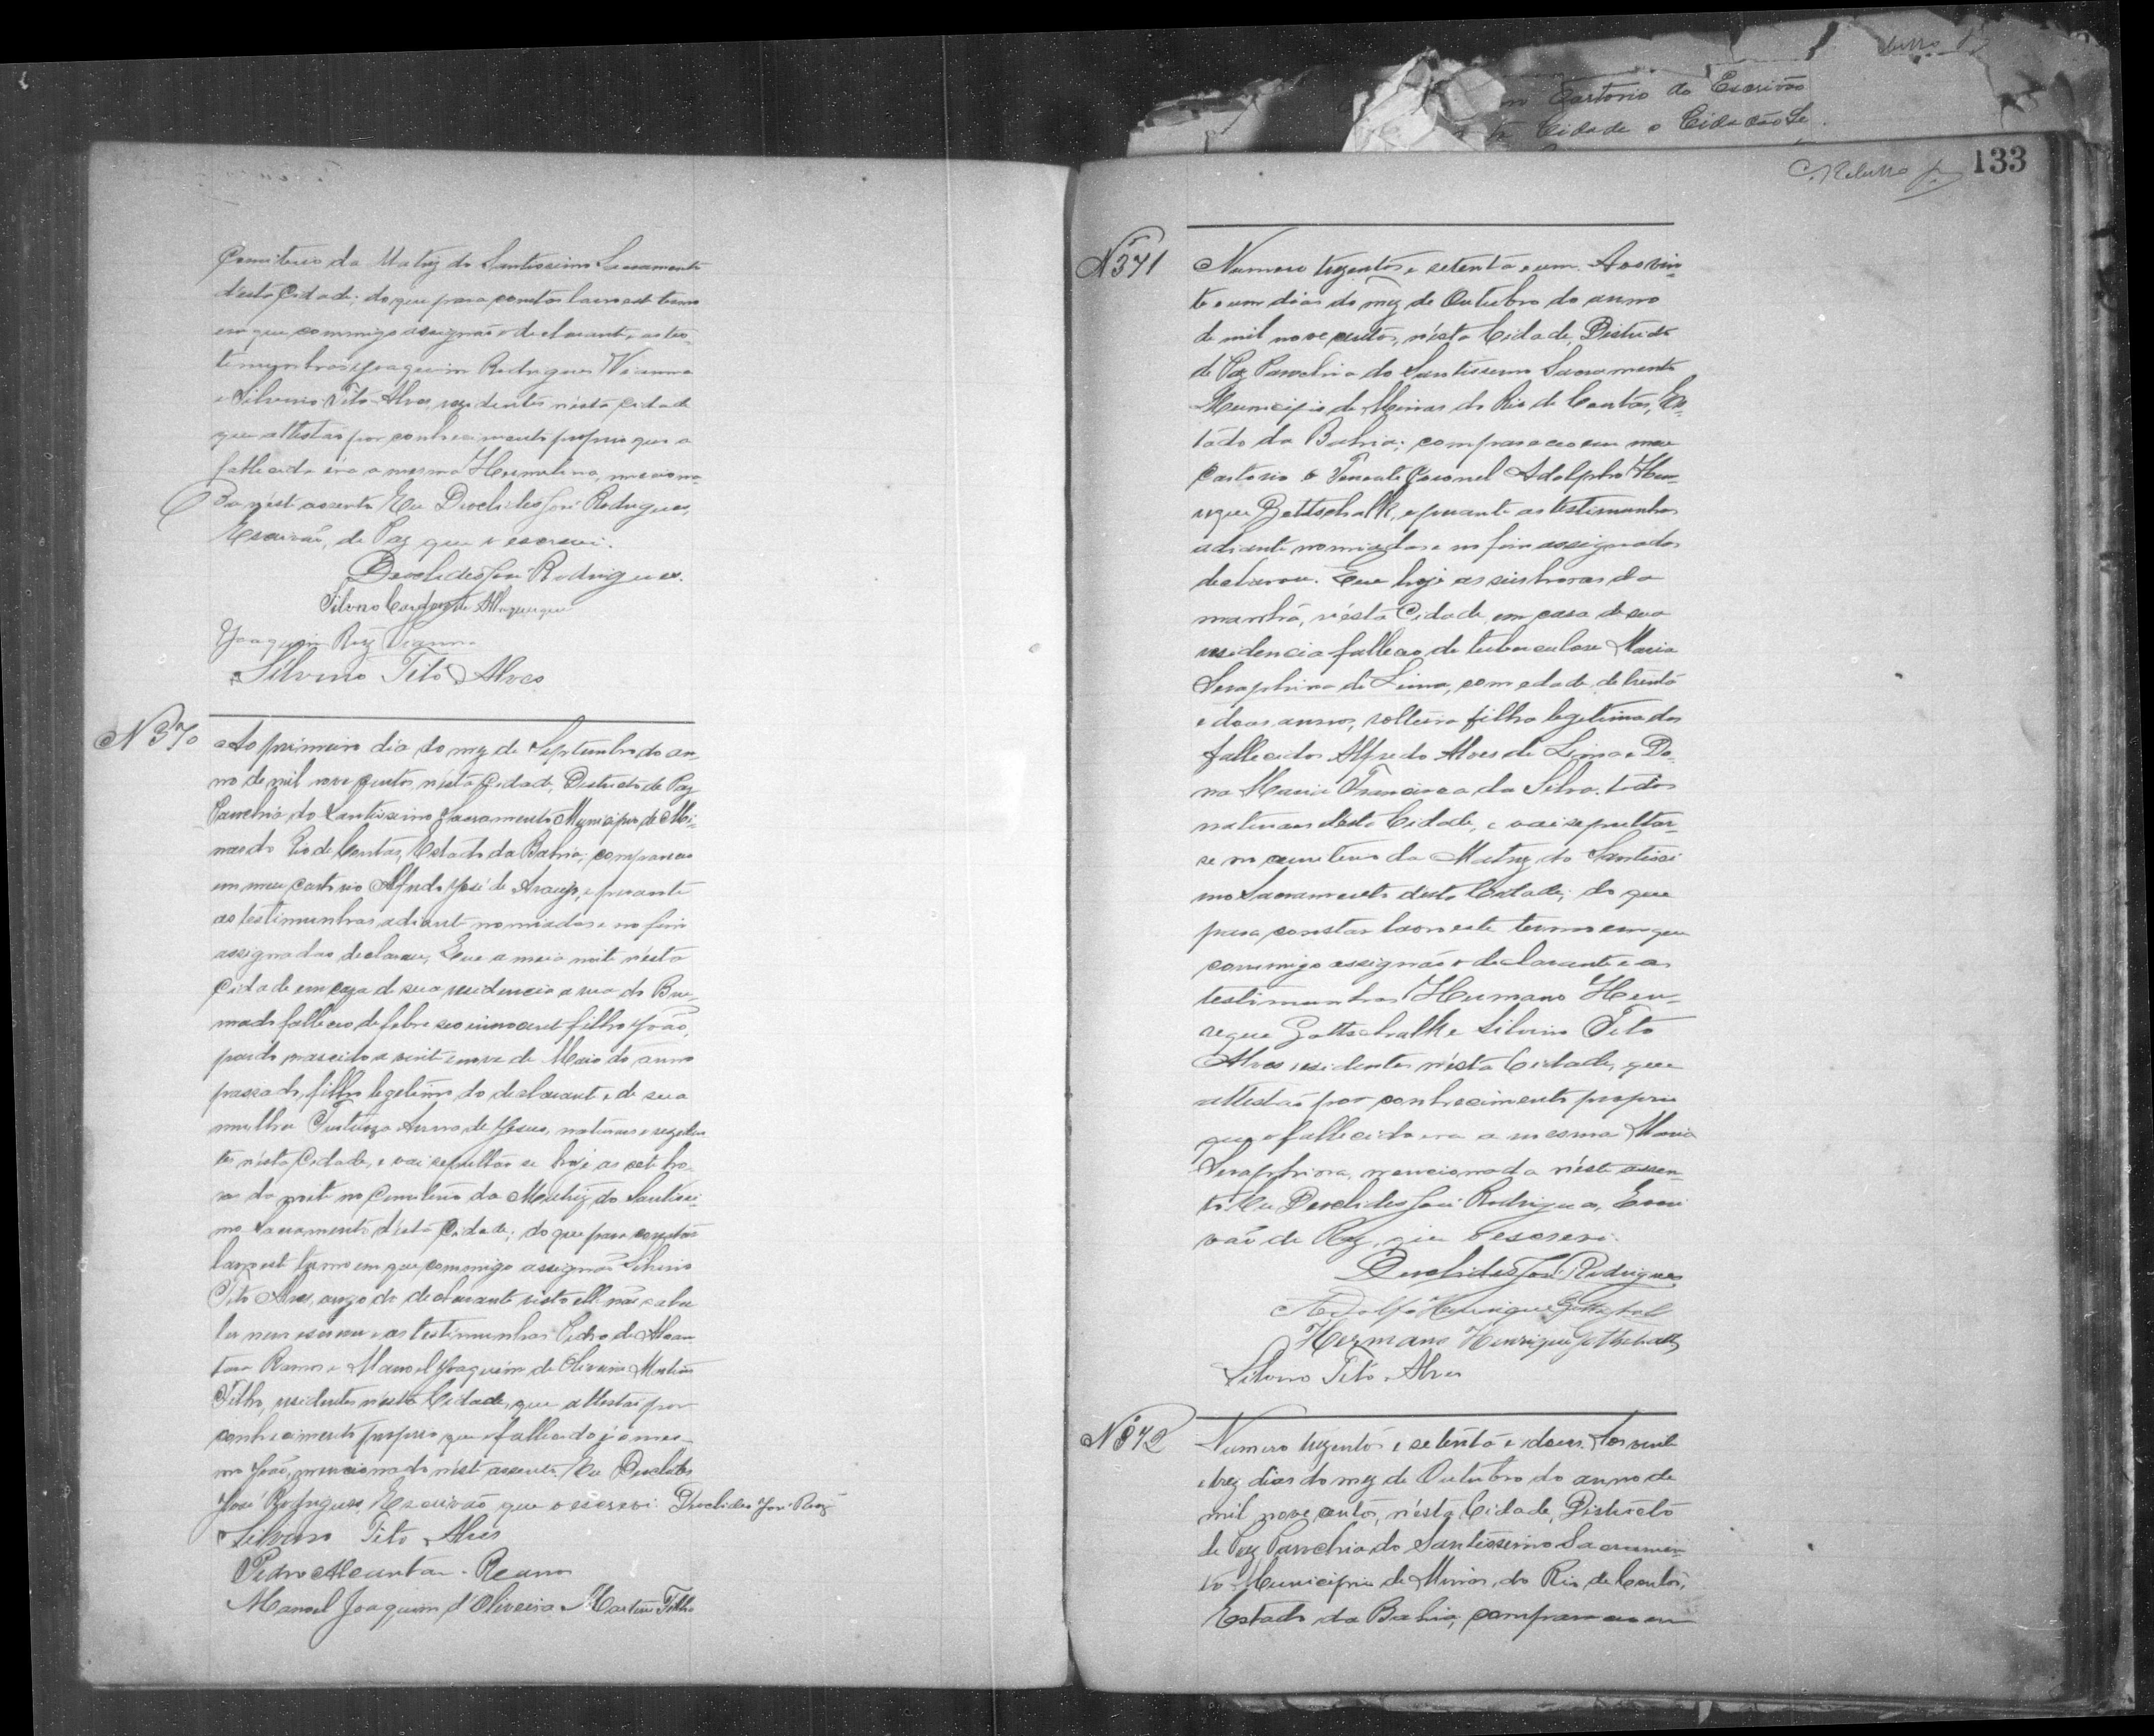 Cemiterio da Matriz do Santissimo Sacramento
d'ésta Cidade; do que para constar lavro este termo
em que commigo assignão o declarante, as tes-
temunhas Joaquim Rodrigues Vianna
e Silvino Tito Alves, rezidentes n'ésta cidade
que attestão por conhecimento proprio que a
fallecida éra a mesma Hermelina, menciona-
da n'este assento. Eu Deoclides José Rodrigues,
Escrivão de Paz que o escrevi.
Deoclides José Rodrigues.
Silvino Albuquerque
Joaquim Roiz Vianna
Silvino Tito Alves
N 370
Ao primeiro dia do mez de Septembro do an-
no de mil nove centos, n'ésta Cidade, Districto de Paz
Parochia do Santissimo Sacramento Municipio de Mi-
nas do Rio de Contas, Estado da Bahia; compareceo
em meu cartorio Alfredo José de Araujo, e perante
as testimunhas adiante nomiadas e no fim
assignadas declarou, Que a meia noite n'ésta
Cidade em caza de sua residencia a rua do Bru-
mado falleceo de febre seo innocente filho João,
pardo nascido a vinte e nove de Maio do anno
passado, filho legetimo do declarante e de sua
mulher Anna de Jesus, naturaes e rezeden-
tes n'ésta Cidade, e vai sepultar se hoje as sete ho-
ras da noite no Cemiterio da Matriz do Santissi-
mo Sacramento d'ésta Cidade; do que para constar
lavro este termo em que commigo assignão Silvino
Tito Alves, arogo do declarante visto elle não saber
ler nem escrever e as testimunhas Pedro de Alcan-
tara Ramos e Manoel Joaquim de Oliveira Martins
Filho, residentes n'ésta Cidade, que attestão por
conhecimento proprio que o fallecido é o mes-
mo João, mencionado n'este assento. Eu Deoclides
José Rodrigues, Escrivão que o escrevi. Deoclides José Roiz
Silvino Tito Alves
Pedro Alcantara Ramos
Manoel Joaquim d'Oliveira Martins Filho
133
N 371
Numero trezentos e setenta e um. Aos vin-
te e um dias do mez de Outubro do anno
de mil nove centos, n'ésta Cidade, Districto
de Paz Parochia do Santissimo Sacramento
Municipio de Minas do Rio de Contas, Es-
tado da Bahia; compareceo em meu
Cartorio o Tenente Coronel Adolpho Hen-
rique Gottschalk, e perante as testimunhas
adiante nomiadas e no fim assignadas
declarou. Que hoje as seis horas da
manhã, n'ésta Cidade, em casa de sua
residencia falleceo de tuberculose Maria
Seraphina de Lima, com edade de trinta
e dous annos, solteira filha legetima dos
fallecidos Alfredo Alves de Lima e Do-
na Maria Francisca da Silva, todos
naturaes desta Cidade, e vai sepultar-
se no cemiterio da Matriz do Santissi
mo Sacramento desta Cidade; do que
para constar lavro este termo em que
commigo assignão o declarante e as
testimunhas Hermano Hen-
rique Gottschalk e Silvino Tito
Alves residentes n'ésta Cidade, que
attestão por conhecimento proprio
que a fallecida era a mesma Maria
Seraphina, mencionada n'éste assen-
to. Eu Deoclides José Rodrigues, Escri
vão de Paz, que o escrevi.
Deoclides José Rodrigues
Adolfo Henrique Gottschalk
Hermano Henrique Gottschalk
Silvino Tito Alves
N 372
Numero trezentos e setenta e dous. Aos vinte
e trez dias do mez de Outubro do anno de
mil nove centos, n'ésta Cidade, Districto
de Paz Parochia do Santissimo Sacramen-
to Municipio de Minas do Rio de Contas,
Estado da Bahia, compareceo em
Cartorio do Escrivão
Cidade o Cidadão